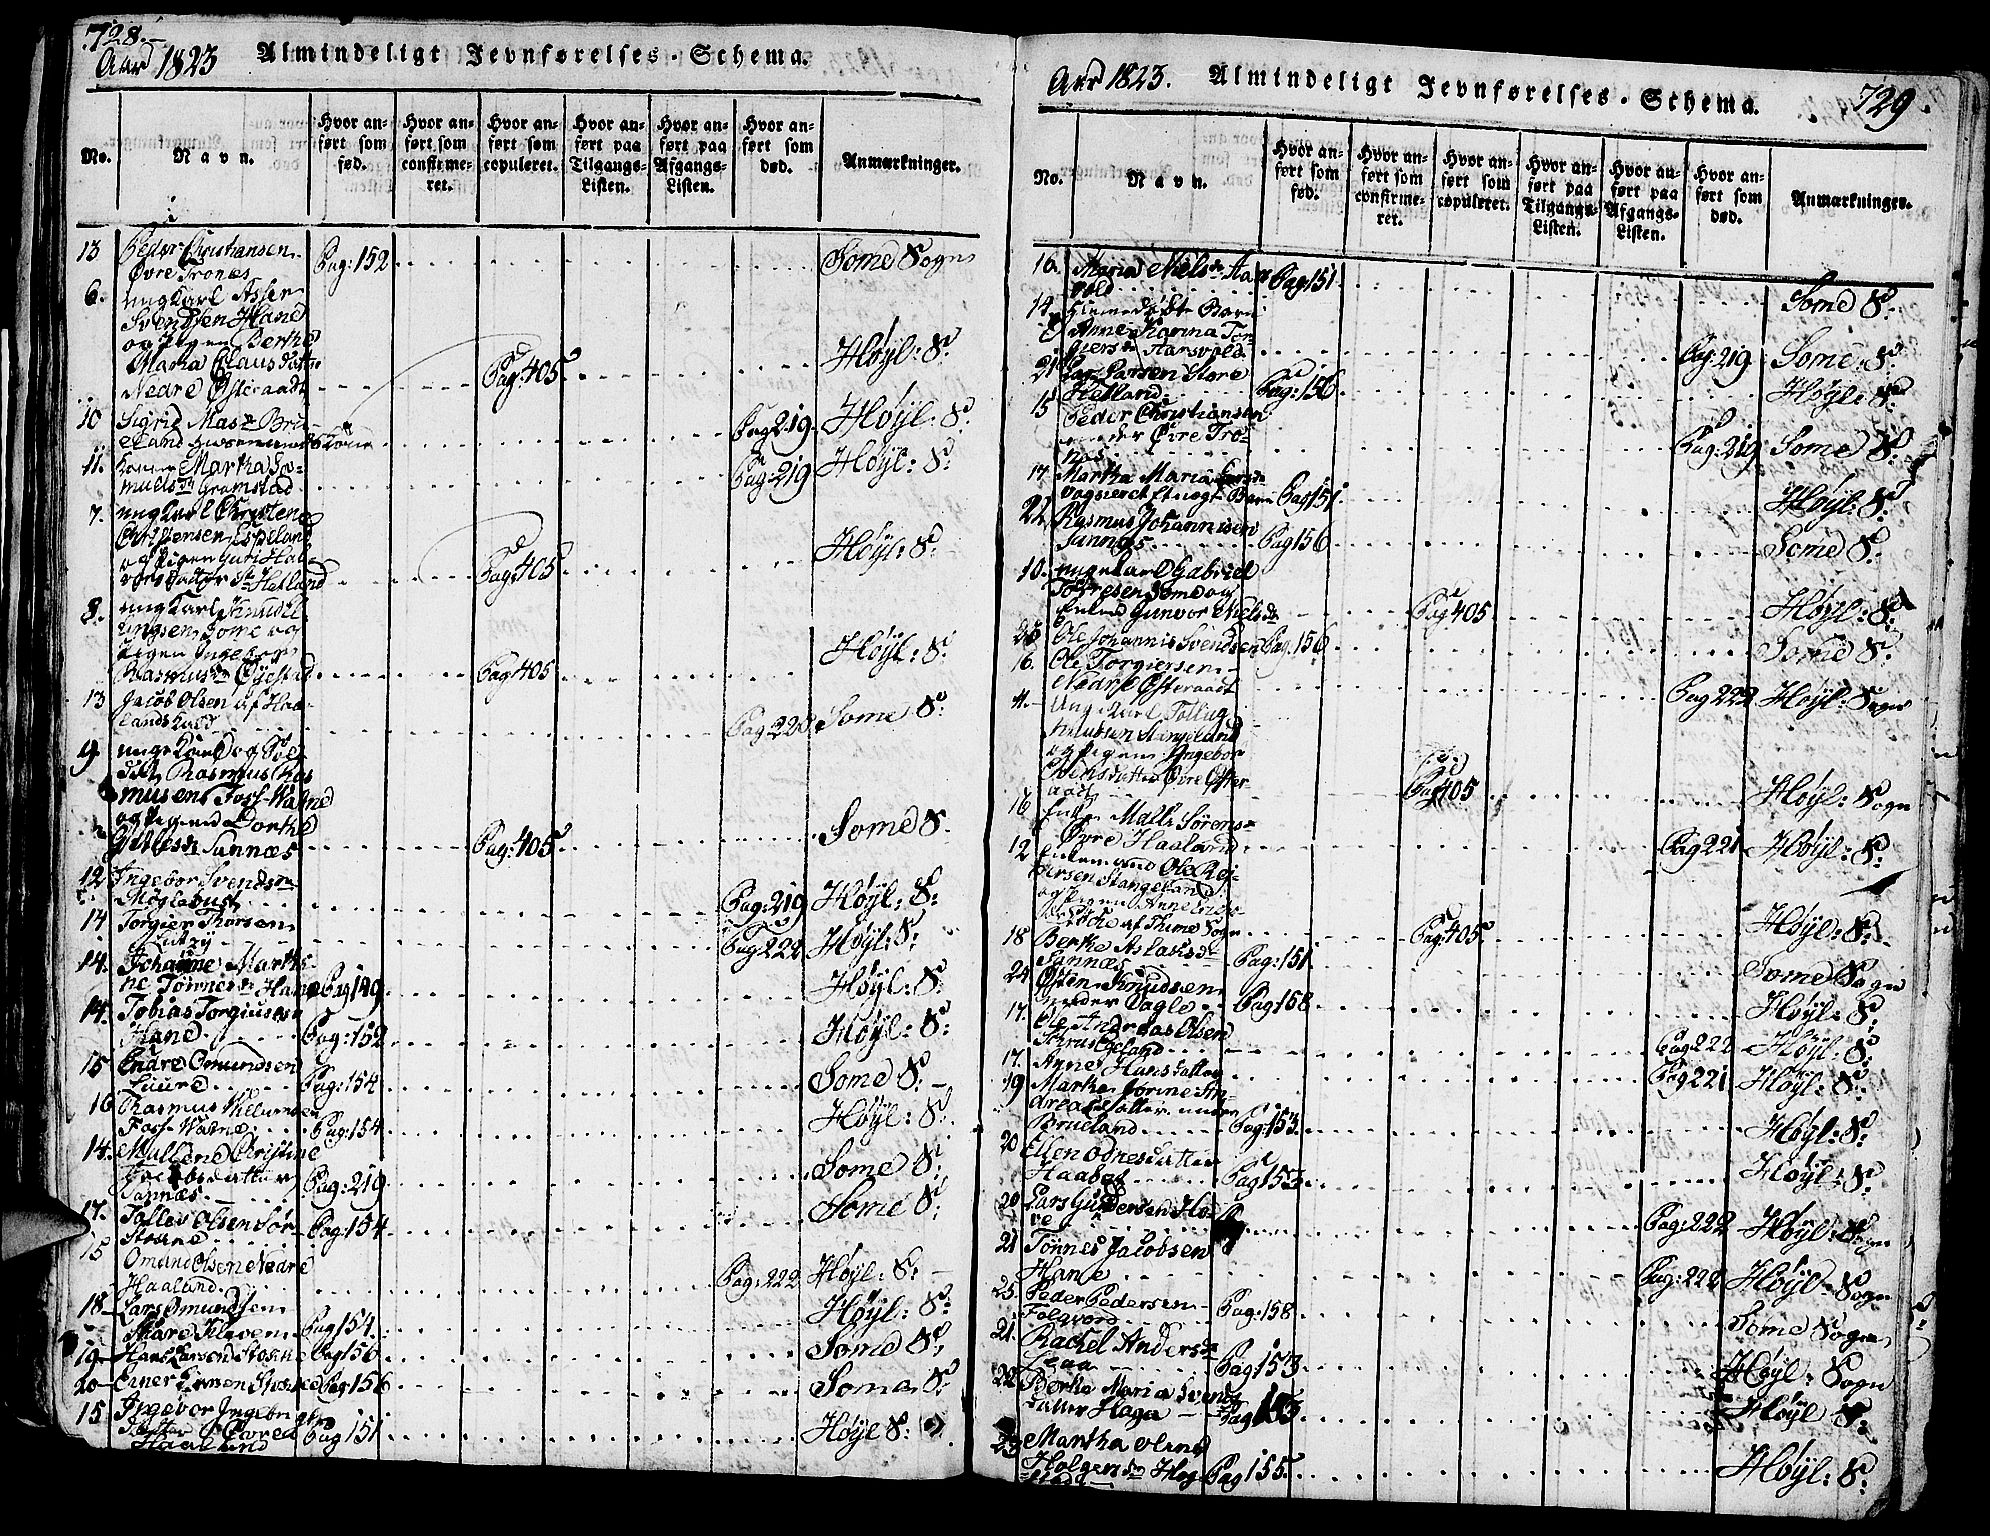 728.
Aar 1823 Almindeligt Jevnførelses-Schema.
No. Navn. Hvor anført som fød. Hvor anført som confirmeret. Hvor anført som copuleret. Hvor anført paa Tilgangs-Listen. Hvor anført paa Afgangs-Listen. Hvor anført som død. Anmærkninger.
13 Peder Christiansen
Øvre Trones Pag: 152 Some Sogn
6. ungkarl Asser
Svendsen Hane
og Pigen Berthe
Maria Claus datter
Nedre Østeraadt Pag: 405 Høyl: S:
10 Sigrid Mas
eland huusmands Kone Pag 219 Høyl: S:
11. Konen Martha Sa-
muelsdr Gramstad Pag: 219 Høyl: S:
7. ungkarl Christen
Christensen Espeland
og Pigen Guri Hal-
vors datter St Hetland Pag: 405 Høyl: S:
8. ungkarl Knud El-
lingsen Some og
Pigen Ingebor
Rasmusdr Øystad Pag 405 Høyl: S:
13 Jacob Olsen af Haa-
lands Pag 220 Some S:
9 unge Karl og Sol-
dat Rasmus Ras
musen Foss-Vatne
og Pigen Dorthe
Sannæs Pag: 405 Some S.
12 Ingebor Svendsdr
Møglebust Pag: 219 Høyl: S:
14 Torgier Thorsen
Lutzy Pag: 222 Høyl: S:
14. Johanne Marth-
ne Tønnesdr Hane Pag 149 Høyl: S:
14. Tobias Torgiersen
Hane Pag: 152 Høyl: S:
15 Endre Omundsen
Luure Pag: 154 Some S:
16 Rasmus Villumsen
Foss-Vatne Pag: 154 Høyl: S:
14. Mallene Christine
Jacobsdatter
Sannæs Pag: 219 Some S:
17. Tollev Olsen Sør
Stokke Pag: 154 Some S:
15 Omund Olsen Nedre
Haaland Pag: 222 Høyl: S:
18 Lars Omundsen
Skare Kleven Pag 154. Høyl: S:
19 Hans Larsen Stokke Pag 156 Some S:
20 Einer Larsen Stokke Pag: 156 Some S:
15 Ingebor Ingebrigts
datter Øvre
Haaland Pag 151 Høyl S:
Aar 1823. Almindeligt Jevnførelses-Schema. 729.
No. Navn. Hvor anført som fød. Hvor anført som confirmeret. Hvor anført som copuleret. Hvor anført paa Tilgangs-Listen. Hvor anført paa Afgangs-Listen. Hvor anført som død. Anmærkninger.
16. Maria Nielsdr Aar
vold Pag 151 Some S:
14 Hiemedøbte Barn
Anne Karina Tor-
giersdr Aarsvold Pag: 219 Some S:
21 Lars Larsen Store
Hetland Pag: 156 Høyl: S:
15 Peder Christiansen
under Øvre Tro-
nes Pag: 219 Some S:
17 Martha Maria Larsdr
Barn Pag 151 Høyl: S:
22 Rasmus Johannisen
Sannæs Pag 156 Some S:
10. ungekarl Gabriel
Torresen Some og
Enken Gunvor Nielsdr Pag 405 Høyl: S:
23 Ole Johannis Svendsen Pag. 156 Some S:
16. Ole Torgiersen
Nedre Østeraadt Pag 222 Høyl: Sogn
4. Ung Karl Tollag
Knudsen Stangeland
og Pigen Ingebor
datter Øvre Øster
aadt Pag 405 Høyl: Sogn
16 Enken Malli Sørens
Øvre Haaland Pag 221 Høyl: S:
12 Enkemand Ole Rei-
ersen Stangeland
og Pigen Anne Erics-
datter af Thime Sogn Pag: 405 Høyl: S:
18 Berthe Aslaksdr
Sannæs Pag: 151 Some Sogn
24 Østen Knudsen
under Vagle Pag: 158 Høyl: S:
17. Ole Andreas Olsen
Skrudeland Pag: 222 Høyl: S:
17. Anne Hansdatter Pag 221 Høyl: S:
19 Marthe Jorine An-
dreasdatter under
Brueland Pag: 153 Høyl: S:
20 Ellen Odnesdatter
Haabet Pag: 153 Høyl: S:
20 Lars Gundersen Ho-
ve Pag: 222 Høyl: Sogn
21 Tønnes Jacobsen
Hane Pag: 222 Høyl: Sogn
25. Peder Pedersen
Folvord Pag: 158 Some Sogn
21. Rachel Andersdr
Leaa Pag: 153 Høyl: Sogn
22 Berthe Maria Svends
datter Haga Pag 153 Høyl S:
23 Martha Olene
Holgersdr Hog-
stad Pag 155 Høyl: S: